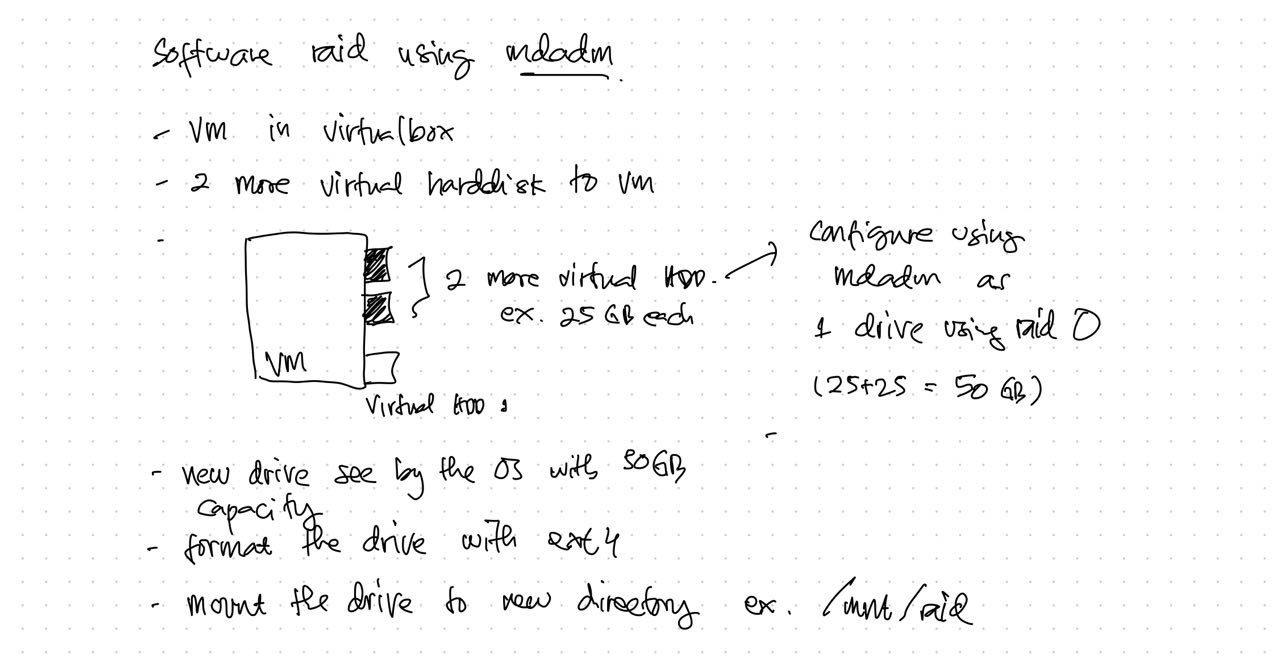 Software raid using mdadm.
- VM in virtualbox
- 2 more virtual harddisk to VM
-
VM
2 more virtual HDD.
ex. 25 GB each
Virtual HDD 1
configure using
mdadm as
1 drive using raid 0
(25+25 = 50 GB)
-
- new drive see by the OS with 50GB
capacity
- format the drive with ext4
- mount the drive to new directory ex. /mnt/raid